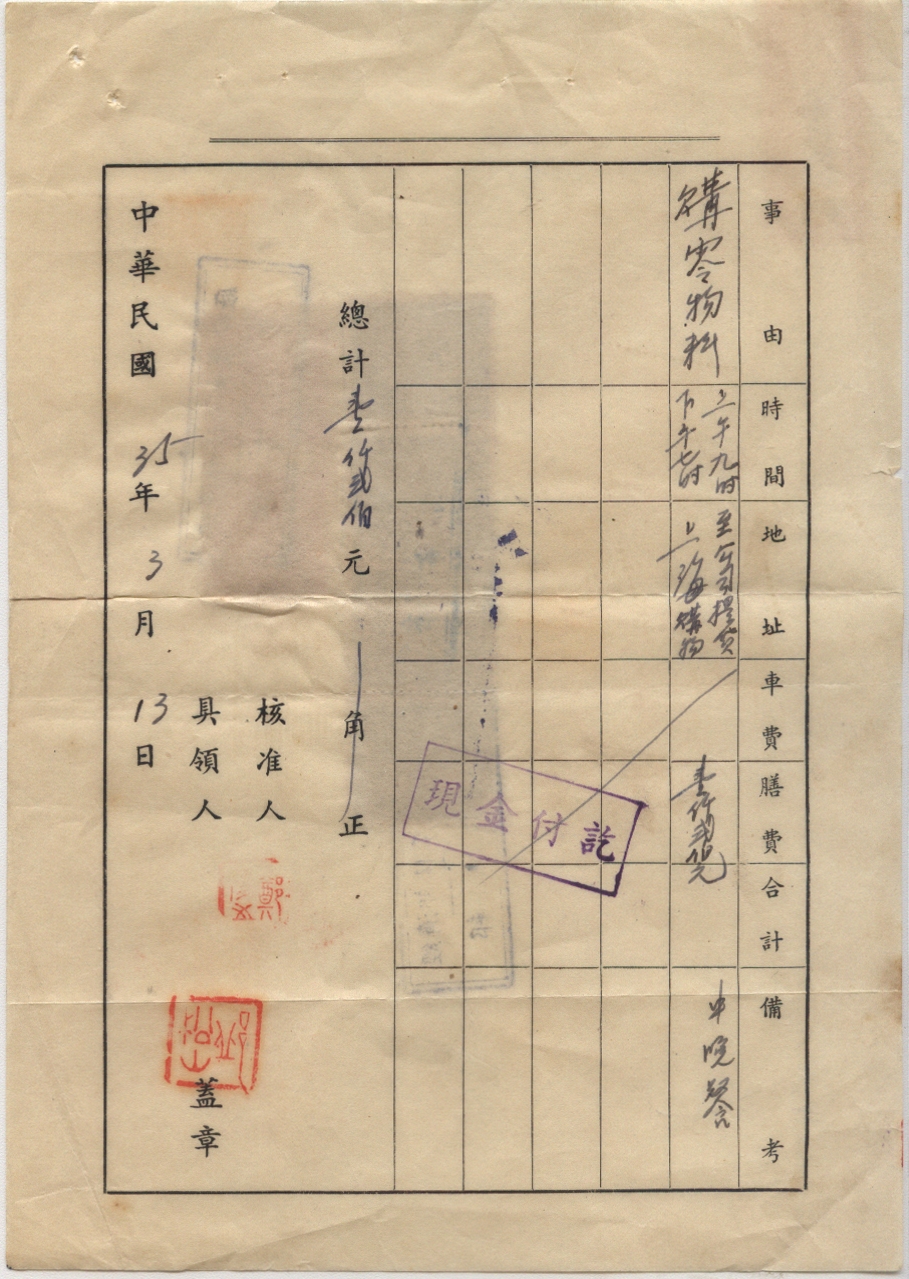 事由
時間
地址
車費
膳費
合計
備考
購零物料
上午九时
下午七时
至公司提货
上海購物
壹仟貳佰元
中晚餐
現金付訖
總計壹仟貳佰元 角正
核准人
具領人
蓋章
中華民國35年3月13日